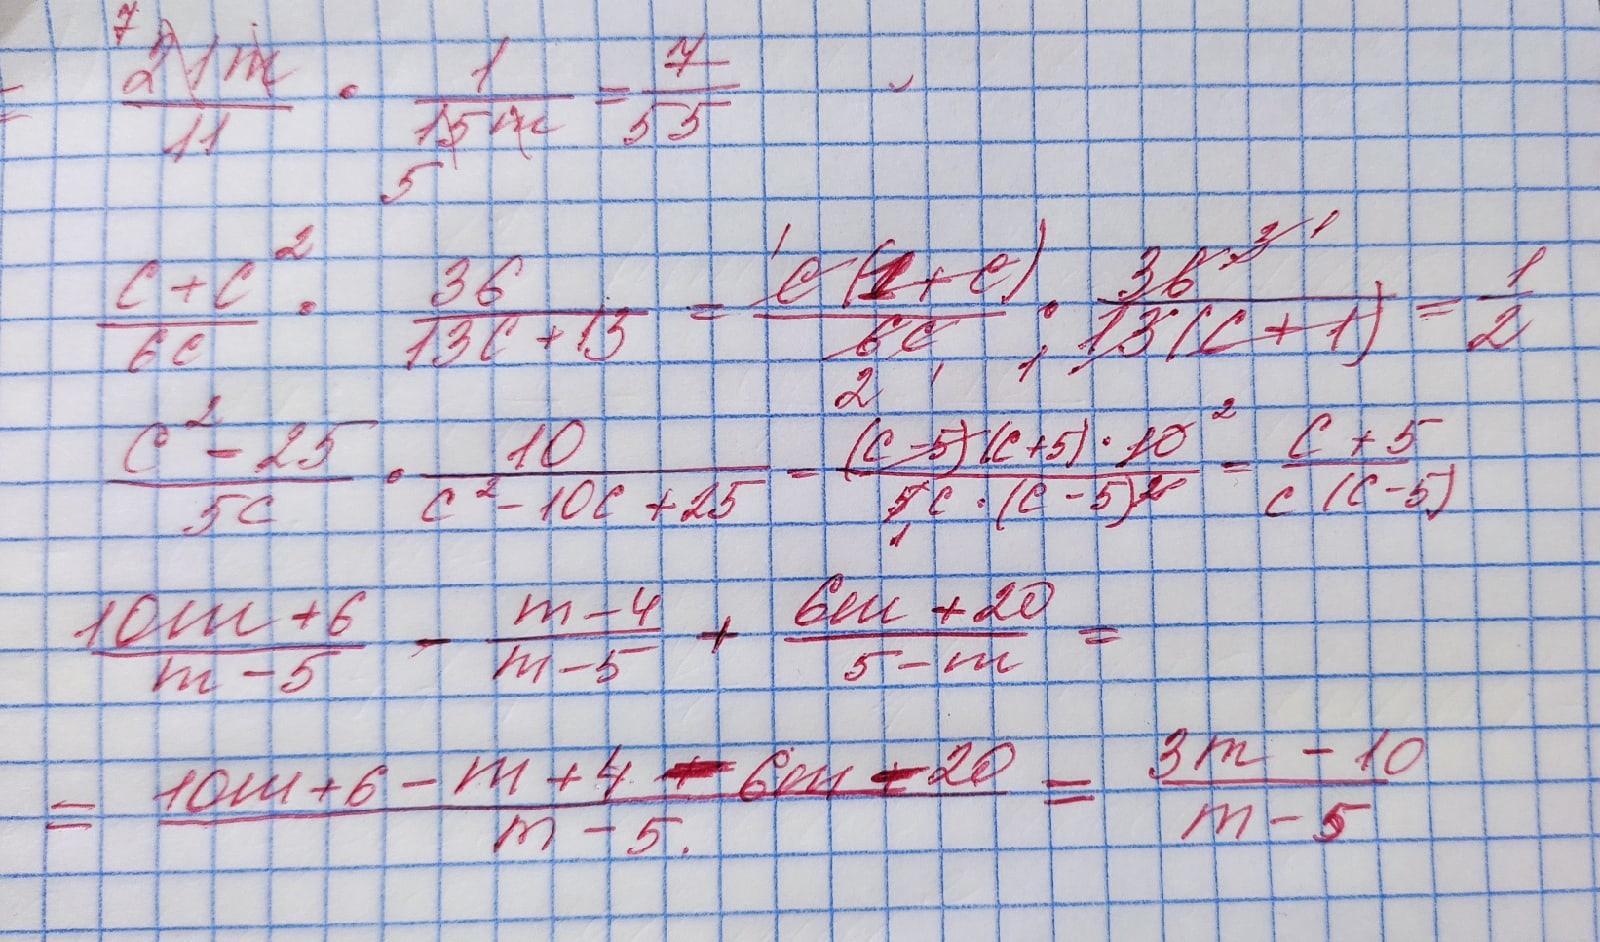 = 21m/11 · 1/15m = 7/55
c+c²/6c · 36/13c+13 = c(1+c)/6c · 36/13(c+1) = 1/2
c²-25/5c · 10/c²-10c+25 = (c-5)(c+5)·10/5c·(c-5)² = c+5/c(c-5)
10m+6/m-5 - m-4/m-5 + 6m+20/5-m =
= 10m+6-m+4-6m-20/m-5. = 3m-10/m-5